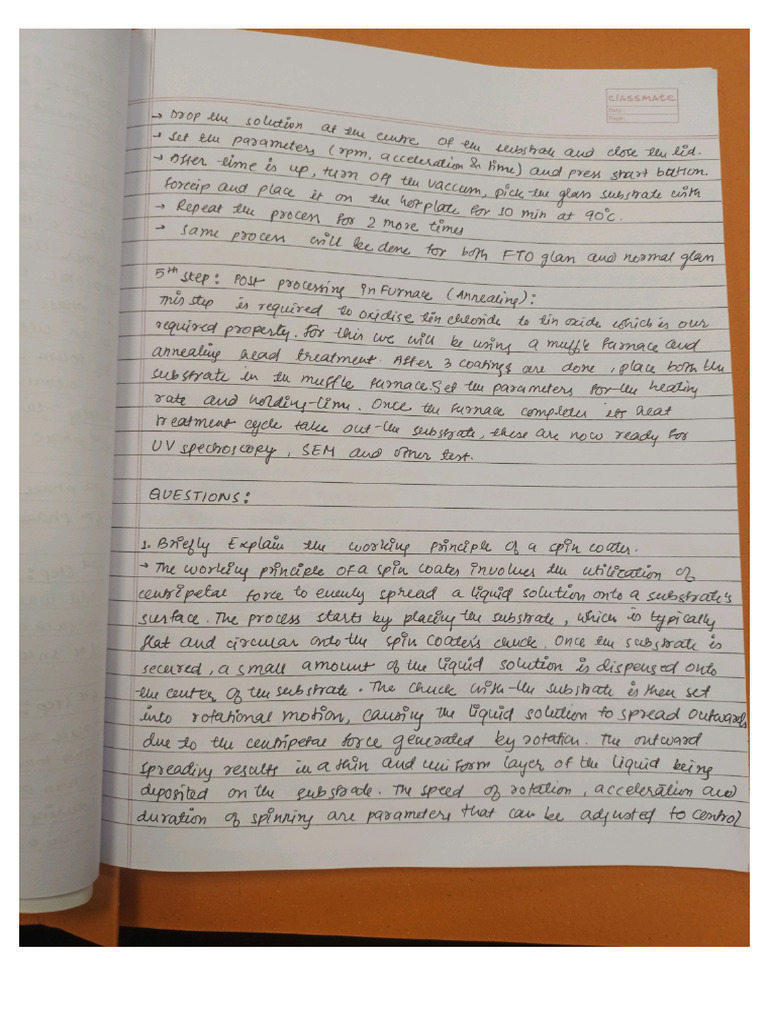 classmate
Date :
Page :
→ Drop the solution at the centre of the substrate and close the lid.
→ Set the parameters (rpm, acceleration & time) and press start button.
→ After time is up, turn off the vaccum, pick the glass substrate with
forceip and place it on the hotplate for 10 min at 90°C.
→ Repeat the process for 2 more times
→ Same process will be done for both FTO glass and normal glass
5th step: Post processing in Furnace (Annealing):
This step is required to oxidise tin chloride to tin oxide which is our
required property. For this we will be using a muffle furnace and
annealing head treatment. After 3 coatings are done, place both the
substrate in the muffle furnace. Set the parameters for the heating
rate and holding-time. Once the furnace completes its heat
treatment cycle take out the substrate, these are now ready for
UV spectroscopy, SEM and other test.
QUESTIONS:
1. Briefly Explain the working principle of a spin coater.
→ The working principle of a spin coater involves the utilization of
centripetal force to evenly spread a liquid solution onto a substrate's
surface. The process starts by placing the substrate, which is typically
flat and circular onto the spin coater's chuck. Once the substrate is
secured, a small amount of the liquid solution is dispensed onto
the center of the substrate. The chuck with the substrate is then set
into rotational motion, causing the liquid solution to spread outwards
due to the centripetal force generated by rotation. The outward
spreading results in a thin and uniform layer of the liquid being
deposited on the substrate. The speed of rotation, acceleration and
duration of spinning are parameters that can be adjusted to control